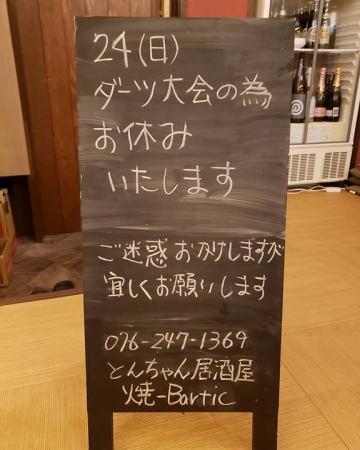 24(日)
ダーツ大会の為
お休み
いたします
ご迷惑おかけしますが
宜しくお願いします
076-247-1369
とんちゃん居酒屋
焼-Bartic